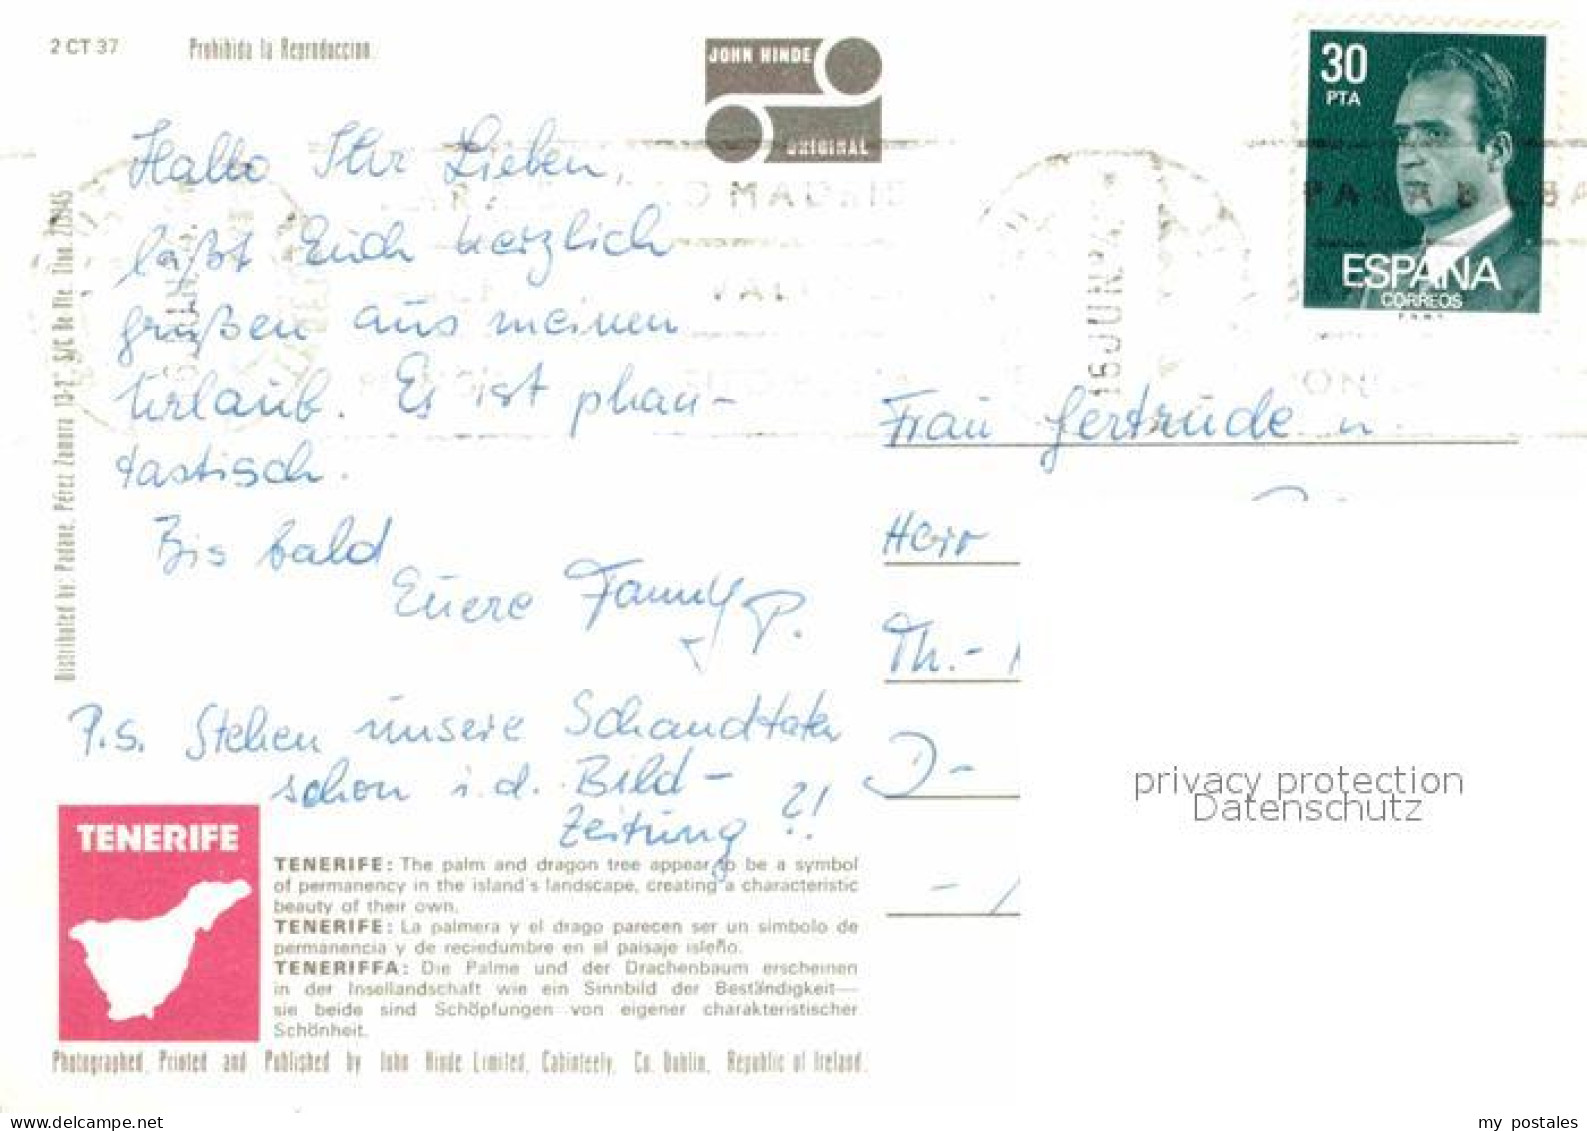 2 CT 37
Prohibida la Reproduccion.
JOHN HINDE
ORIGINAL
30
PTA
ESPAÑA
CORREOS
F.N.M.T.
MADRID
16 JUN
Hallo Ihr Lieben,
läßt Euch herzlich
grüßen aus meinen
Urlaub. Es ist phan-
tastisch.
Bis bald
Euere Fanny P.
P.S. Stehen unsere Schandtaten
schon i.d. Bild-
Zeitung ?!
Frau Gertrude u
Herr
Th.-
D-
privacy protection
Datenschutz
Distributed by: Padane, Pérez Zamora 13-2°, S/C De Tfe. Tfno.
TENERIFE
TENERIFE: The palm and dragon tree appear to be a symbol
of permanency in the island's landscape, creating a characteristic
beauty of their own.
TENERIFE: La palmera y el drago parecen ser un simbolo de
permanencia y de reciedumbre en el paisaje isleño.
TENERIFFA: Die Palme und der Drachenbaum erscheinen
in der Insellandschaft wie ein Sinnbild der Beständigkeit—
sie beide sind Schöpfungen von eigener charakteristischer
Schönheit.
Photographed, Printed and Published by John Hinde Limited, Cabinteely, Co. Dublin, Republic of Ireland.
www.delcampe.net
my_postales